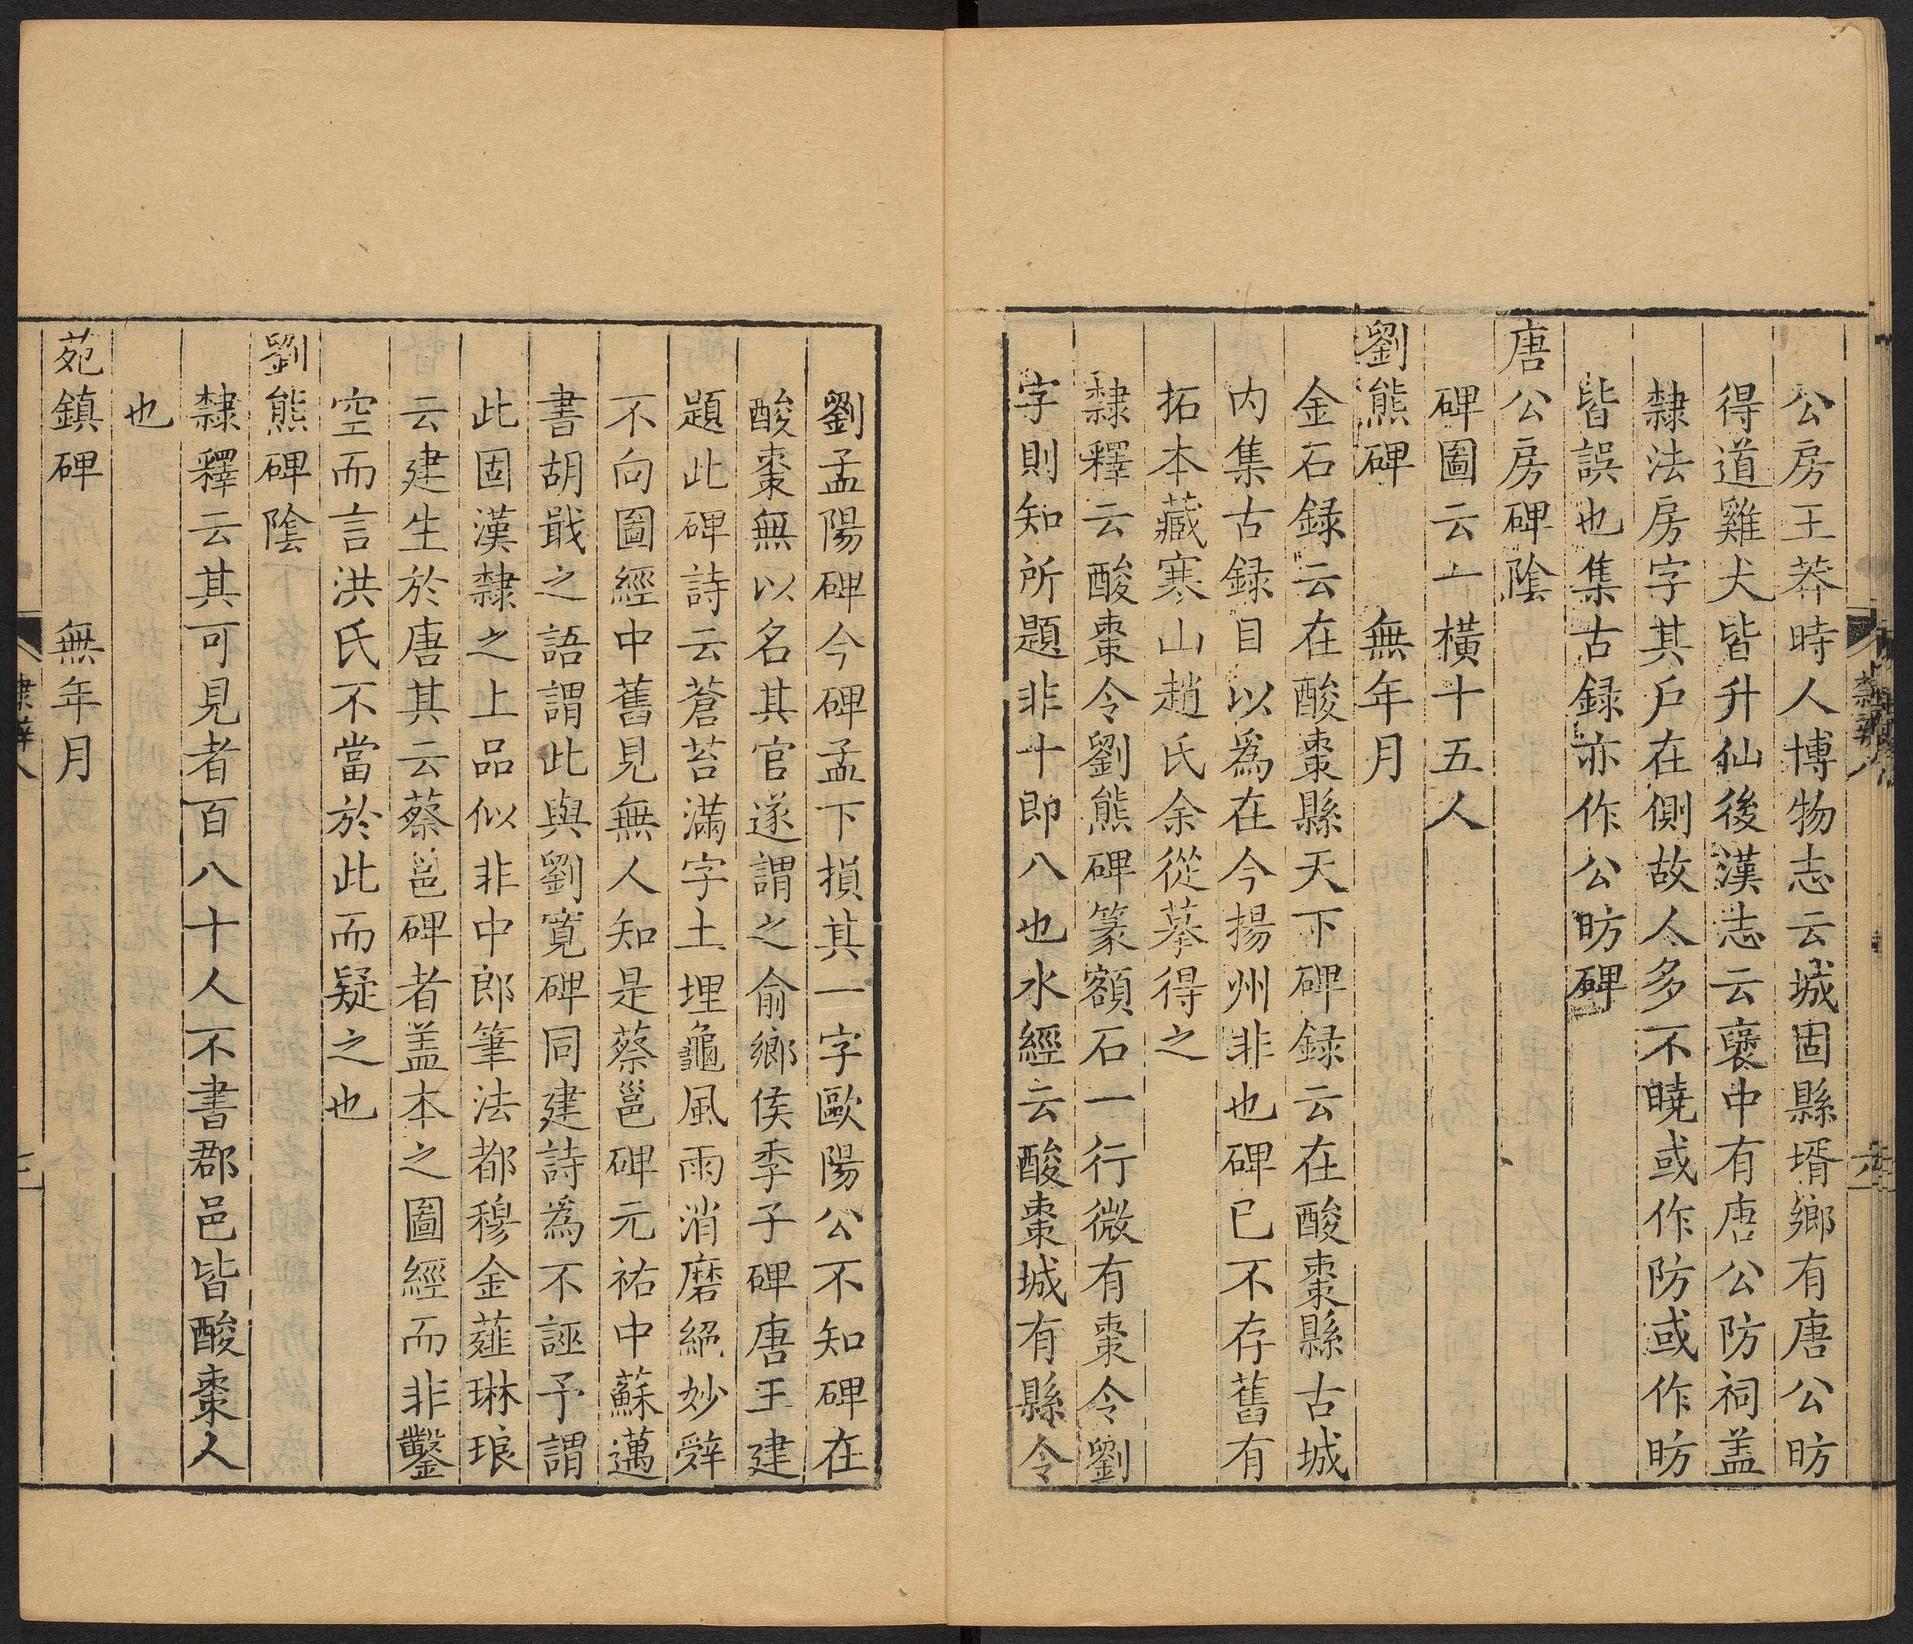 公房王莽時人博物志云城固縣壻鄉有唐公昉
得道雞犬皆升仙後漢志云襃中有唐公防祠盖
隸法房字其戶在側故人多不曉或作防或作昉
皆誤也集古録亦作公昉碑
唐公房碑陰
碑圖云一橫十五人
劉熊碑 無年月
金石録云在酸棗縣天下碑録云在酸棗縣古城
内集古録目以爲在今揚州非也碑已不存舊有
拓本藏寒山趙氏余從摹得之
隸釋云酸棗令劉熊碑篆額石一行微有棗令劉
字則知所題非十即八也水經云酸棗城有縣令
劉孟陽碑今碑孟下損其一字歐陽公不知碑在
酸棗無以名其官遂謂之俞鄉侯季子碑唐王建
題此碑詩云蒼苔滿字土埋龜風雨消磨絕妙辤
不向圖經中舊見無人知是蔡邕碑元祐中蘇邁
書胡戢之語謂此與劉寛碑同建詩爲不誣予謂
此固漢隸之上品似非中郎筆法都穆金薤琳琅
云建生於唐其云蔡邕碑者盖本之圖經而非鑿
空而言洪氏不當於此而疑之也
劉熊碑陰
隸釋云其可見者百八十人不書郡邑皆酸棗人
也
苑鎮碑 無年月